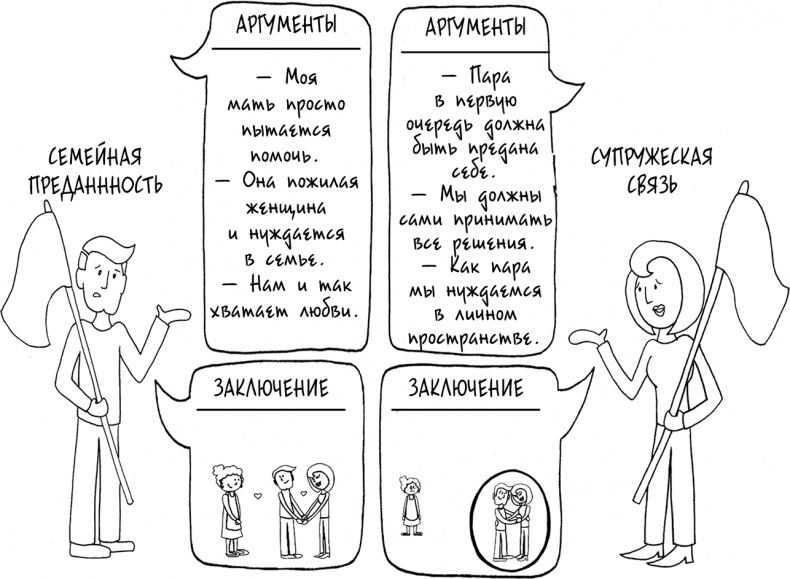 СЕМЕЙНАЯ
ПРЕДАНННОСТЬ
АРГУМЕНТЫ
— Моя
мать просто
пытается
помочь.
— Она пожилая
женщина
и нуждается
в семье.
— Нам и так
хватает любви.
ЗАКЛЮЧЕНИЕ
АРГУМЕНТЫ
— Пара
в первую
очередь должна
быть предана
себе.
— Мы должны
сами принимать
все решения.
— Как пара
мы нуждаемся
в личном
пространстве.
ЗАКЛЮЧЕНИЕ
СУПРУЖЕСКАЯ
СВЯЗЬ